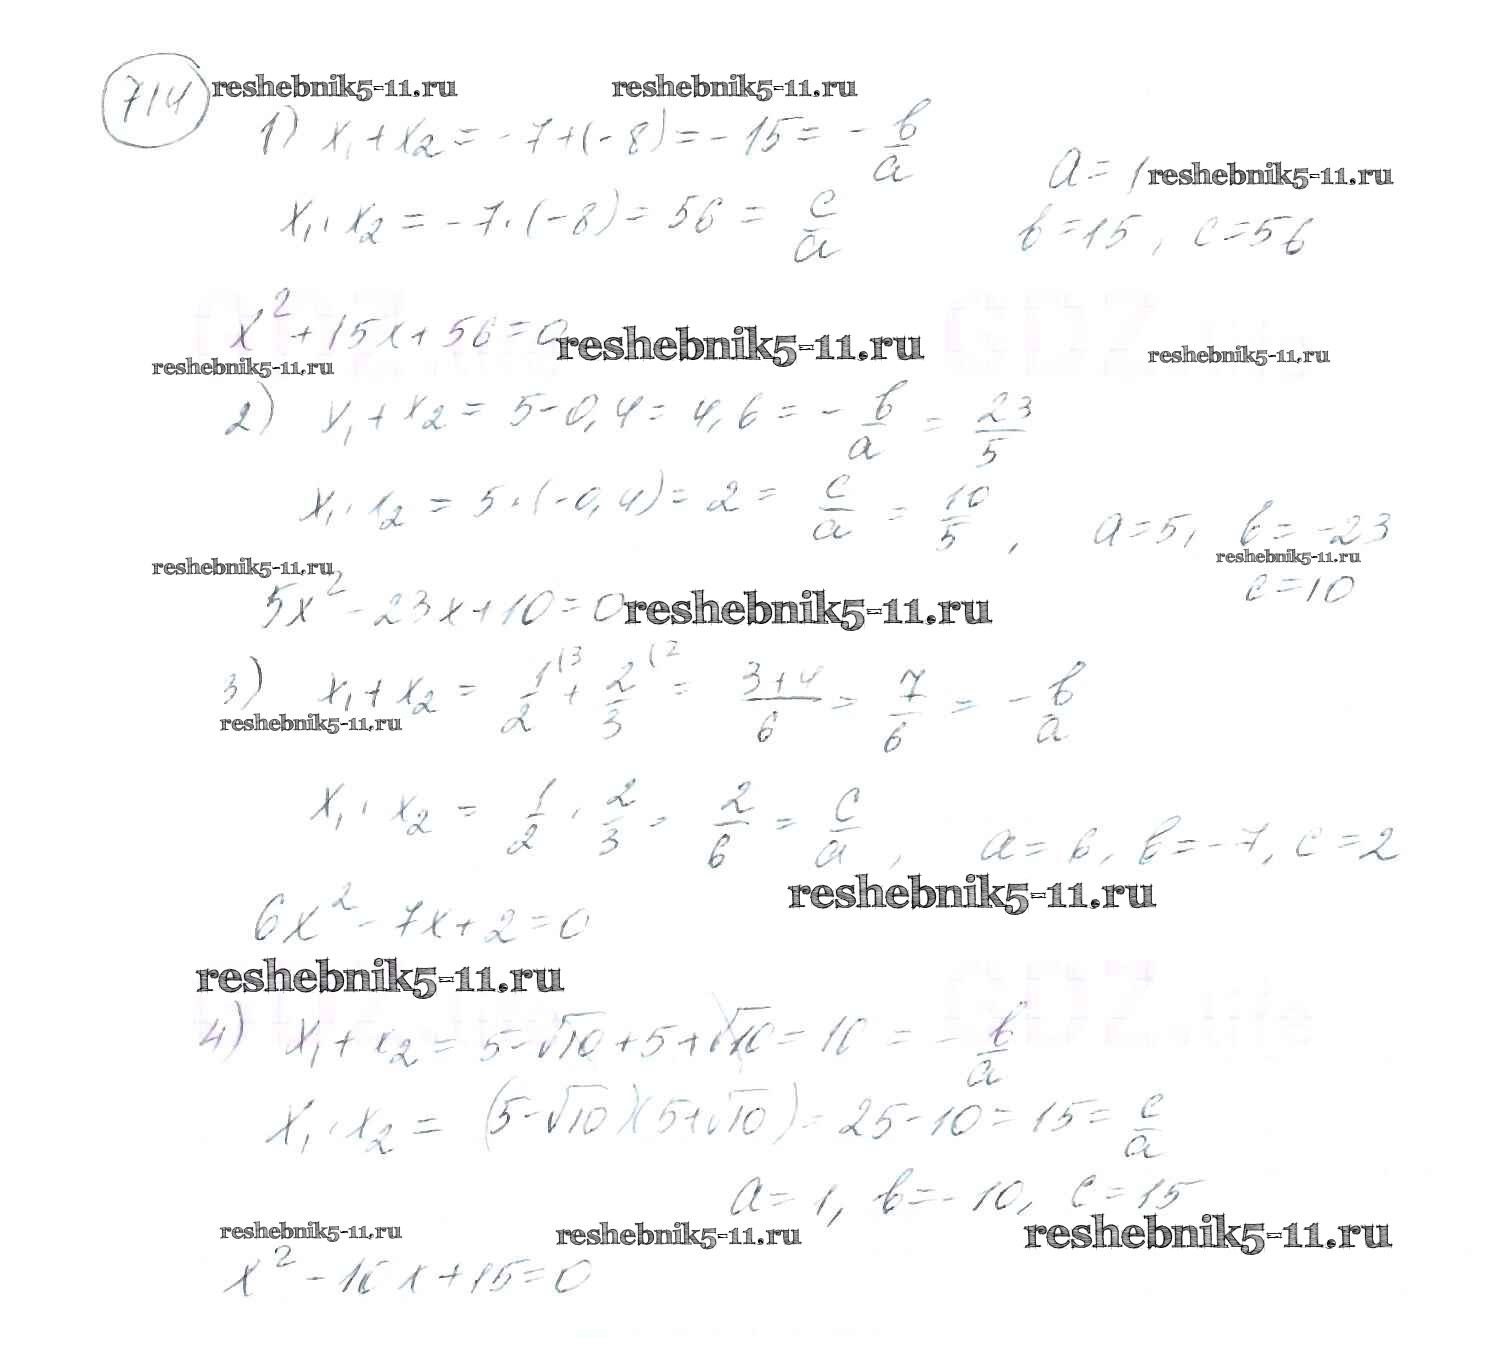 714 reshebnik5-11.ru reshebnik5-11.ru
1) x₁ + x₂ = -7 + (-8) = -15 = - b/a
a = 1 reshebnik5-11.ru
x₁ · x₂ = -7 · (-8) = 56 = c/a b = 15, c = 56
x² + 15x + 56 = 0 reshebnik5-11.ru
reshebnik5-11.ru reshebnik5-11.ru
2) x₁ + x₂ = 5 - 0,4 = 4,6 = - b/a = 23/5
x₁ · x₂ = 5 · (-0,4) = 2 = c/a = 10/5, a = 5, b = -23
reshebnik5-11.ru reshebnik5-11.ru
c = 10
5x² - 23x + 10 = 0 reshebnik5-11.ru
3) x₁ + x₂ = 1/2 (3 + 2/3 (2 = 3+4/6 = 7/6 = - b/a
reshebnik5-11.ru
x₁ · x₂ = 1/2 · 2/3 = 2/6 = c/a, a = 6, b = -7, c = 2
reshebnik5-11.ru
6x² - 7x + 2 = 0
reshebnik5-11.ru
GDZ.life
4) x₁ + x₂ = 5 - √10 + 5 + √10 = 10 = - b/a
x₁ · x₂ = (5 - √10)(5 + √10) = 25 - 10 = 15 = c/a
a = 1, b = -10, c = 15
reshebnik5-11.ru reshebnik5-11.ru reshebnik5-11.ru
x² - 10x + 15 = 0